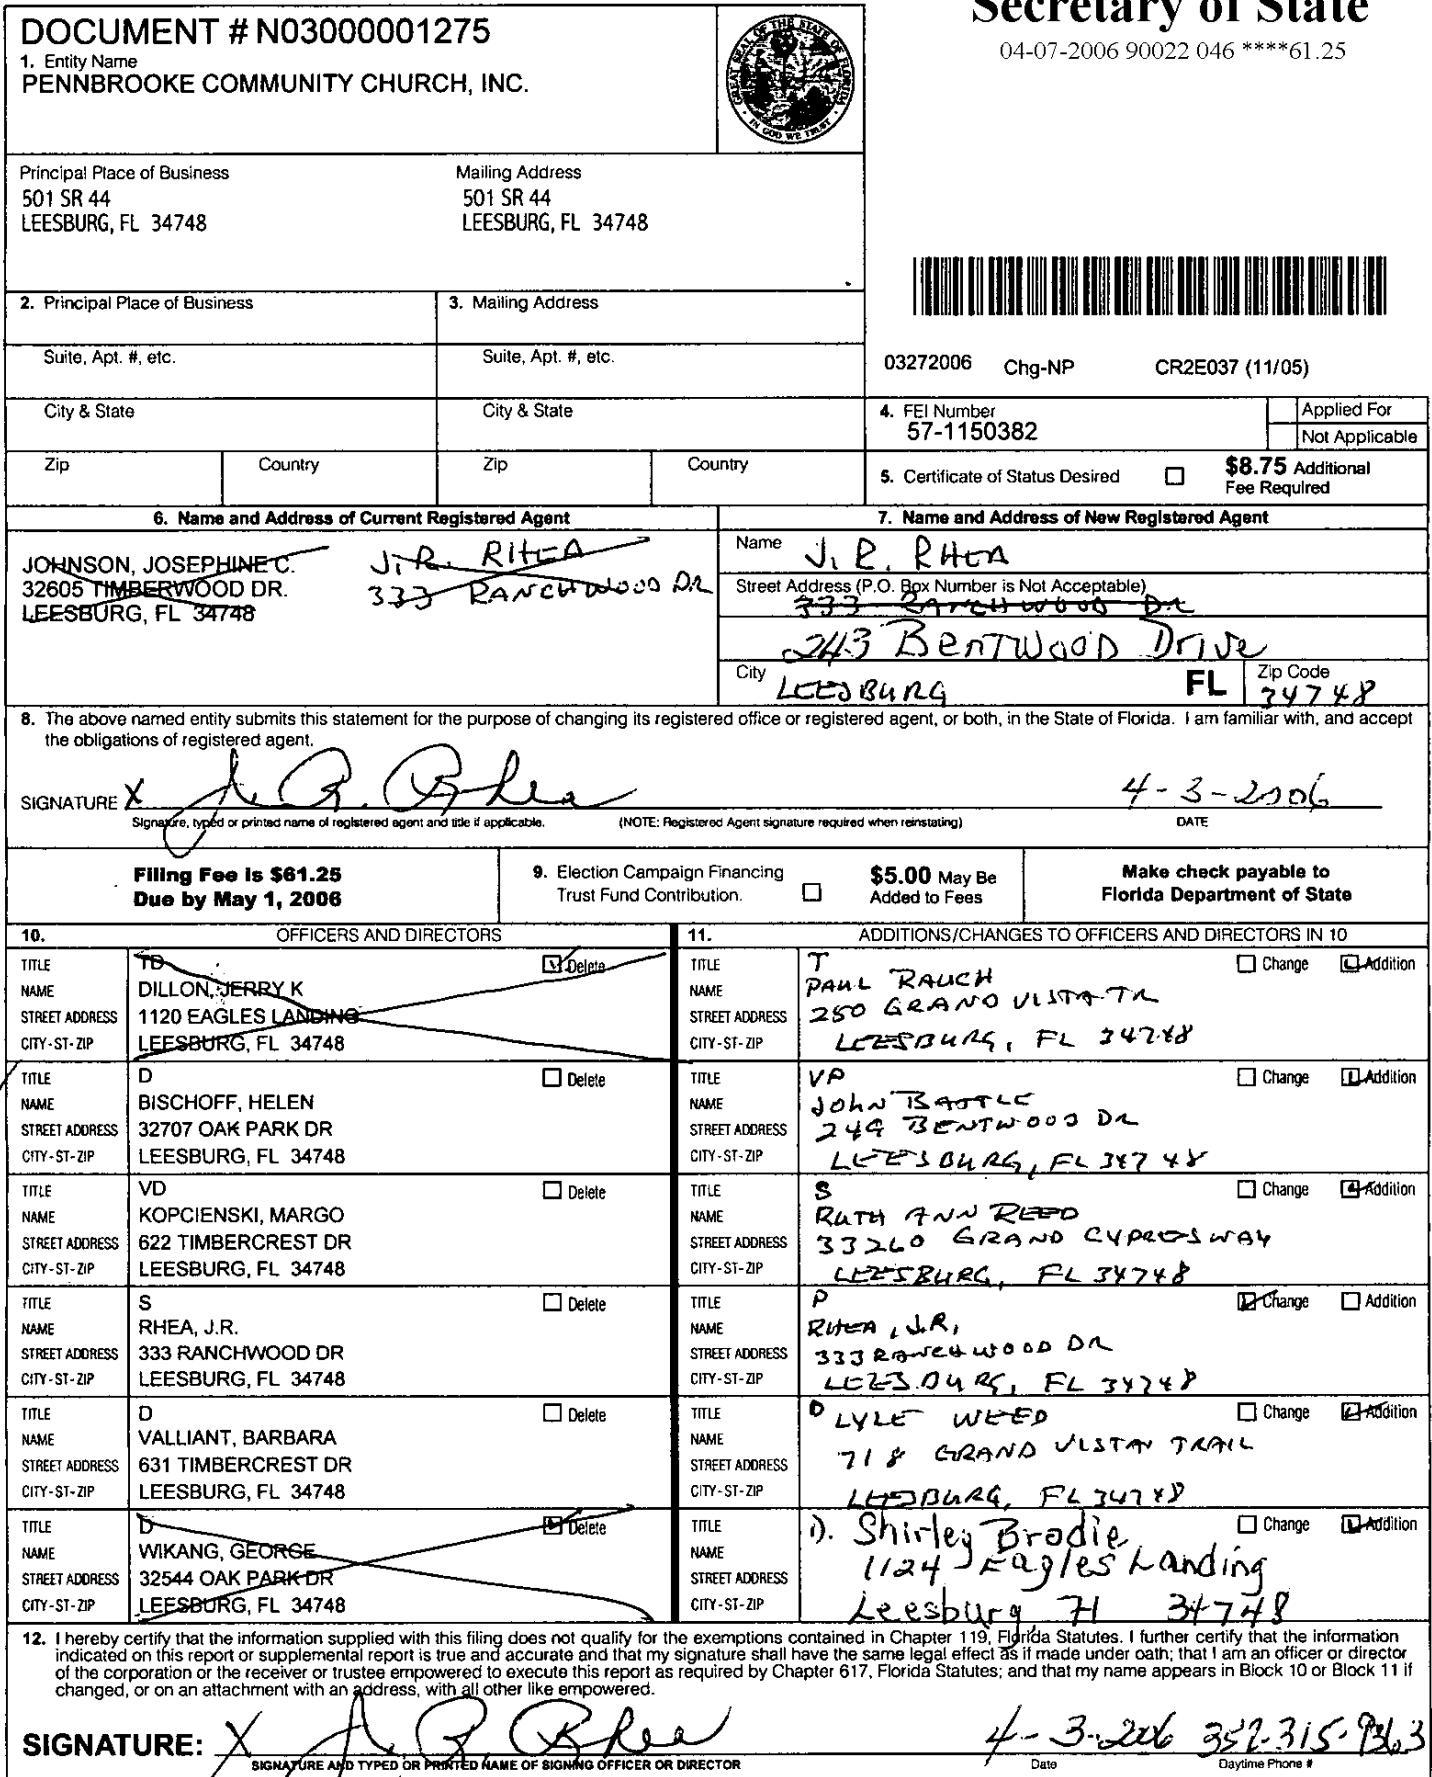 Secretary of State
04-07-2006 90022 046 ****61.25
DOCUMENT # N03000001275
1. Entity Name
PENNBROOKE COMMUNITY CHURCH, INC.
GREAT SEAL OF THE STATE OF FLORIDA
IN GOD WE TRUST
Principal Place of Business
501 SR 44
LEESBURG, FL 34748
Mailing Address
501 SR 44
LEESBURG, FL 34748
2. Principal Place of Business
3. Mailing Address
Suite, Apt. #, etc.
Suite, Apt. #, etc.
03272006 Chg-NP CR2E037 (11/05)
City & State
City & State
4. FEI Number
57-1150382
Applied For
Not Applicable
Zip
Country
Zip
Country
5. Certificate of Status Desired
$8.75 Additional
Fee Required
6. Name and Address of Current Registered Agent
JOHNSON, JOSEPHINE C.
32605 TIMBERWOOD DR.
LEESBURG, FL 34748
J. R. RHEA
333 RANCHWOOD DR
7. Name and Address of New Registered Agent
Name J. R. RHEA
Street Address (P.O. Box Number is Not Acceptable)
333 RANCHWOOD DR
243 BENTWOOD Drive
City LEESBURG FL Zip Code 34748
8. The above named entity submits this statement for the purpose of changing its registered office or registered agent, or both, in the State of Florida. I am familiar with, and accept
the obligations of registered agent.
SIGNATURE X J. R. Rhea 4-3-2006
Signature, typed or printed name of registered agent and title if applicable. (NOTE: Registered Agent signature required when reinstating) DATE
Filing Fee is $61.25
Due by May 1, 2006
9. Election Campaign Financing
Trust Fund Contribution.
$5.00 May Be
Added to Fees
Make check payable to
Florida Department of State
10. OFFICERS AND DIRECTORS
11. ADDITIONS/CHANGES TO OFFICERS AND DIRECTORS IN 10
TITLE TD Delete
NAME DILLON, JERRY K
STREET ADDRESS 1120 EAGLES LANDING
CITY-ST-ZIP LEESBURG, FL 34748
TITLE T Change Addition
NAME PAUL RAUCH
STREET ADDRESS 250 GRAND VISTA TR
CITY-ST-ZIP LEESBURG, FL 34748
TITLE D Delete
NAME BISCHOFF, HELEN
STREET ADDRESS 32707 OAK PARK DR
CITY-ST-ZIP LEESBURG, FL 34748
TITLE VP Change Addition
NAME JOHN BATTLE
STREET ADDRESS 249 BENTWOOD DR
CITY-ST-ZIP LEESBURG, FL 34748
TITLE VD Delete
NAME KOPCIENSKI, MARGO
STREET ADDRESS 622 TIMBERCREST DR
CITY-ST-ZIP LEESBURG, FL 34748
TITLE S Change Addition
NAME RUTH ANN REED
STREET ADDRESS 33260 GRAND CYPRESS WAY
CITY-ST-ZIP LEESBURG, FL 34748
TITLE S Delete
NAME RHEA, J.R.
STREET ADDRESS 333 RANCHWOOD DR
CITY-ST-ZIP LEESBURG, FL 34748
TITLE P Change Addition
NAME RHEA, J.R.
STREET ADDRESS 333 RANCHWOOD DR
CITY-ST-ZIP LEESBURG, FL 34748
TITLE D Delete
NAME VALLIANT, BARBARA
STREET ADDRESS 631 TIMBERCREST DR
CITY-ST-ZIP LEESBURG, FL 34748
TITLE D LYLE WEED Change Addition
NAME 718 GRAND VISTA TRAIL
STREET ADDRESS
CITY-ST-ZIP LEESBURG, FL 34748
TITLE D Delete
NAME WIKANG, GEORGE
STREET ADDRESS 32544 OAK PARK DR
CITY-ST-ZIP LEESBURG, FL 34748
TITLE D. Shirley Brodie Change Addition
NAME 1124 Eagles Landing
STREET ADDRESS
CITY-ST-ZIP Leesburg Fl 34748
12. I hereby certify that the information supplied with this filing does not qualify for the exemptions contained in Chapter 119, Florida Statutes. I further certify that the information
indicated on this report or supplemental report is true and accurate and that my signature shall have the same legal effect as if made under oath; that I am an officer or director
of the corporation or the receiver or trustee empowered to execute this report as required by Chapter 617, Florida Statutes; and that my name appears in Block 10 or Block 11 if
changed, or on an attachment with an address, with all other like empowered.
SIGNATURE: X J. R. Rhea 4-3-2006 352-315-9363
SIGNATURE AND TYPED OR PRINTED NAME OF SIGNING OFFICER OR DIRECTOR Date Daytime Phone #